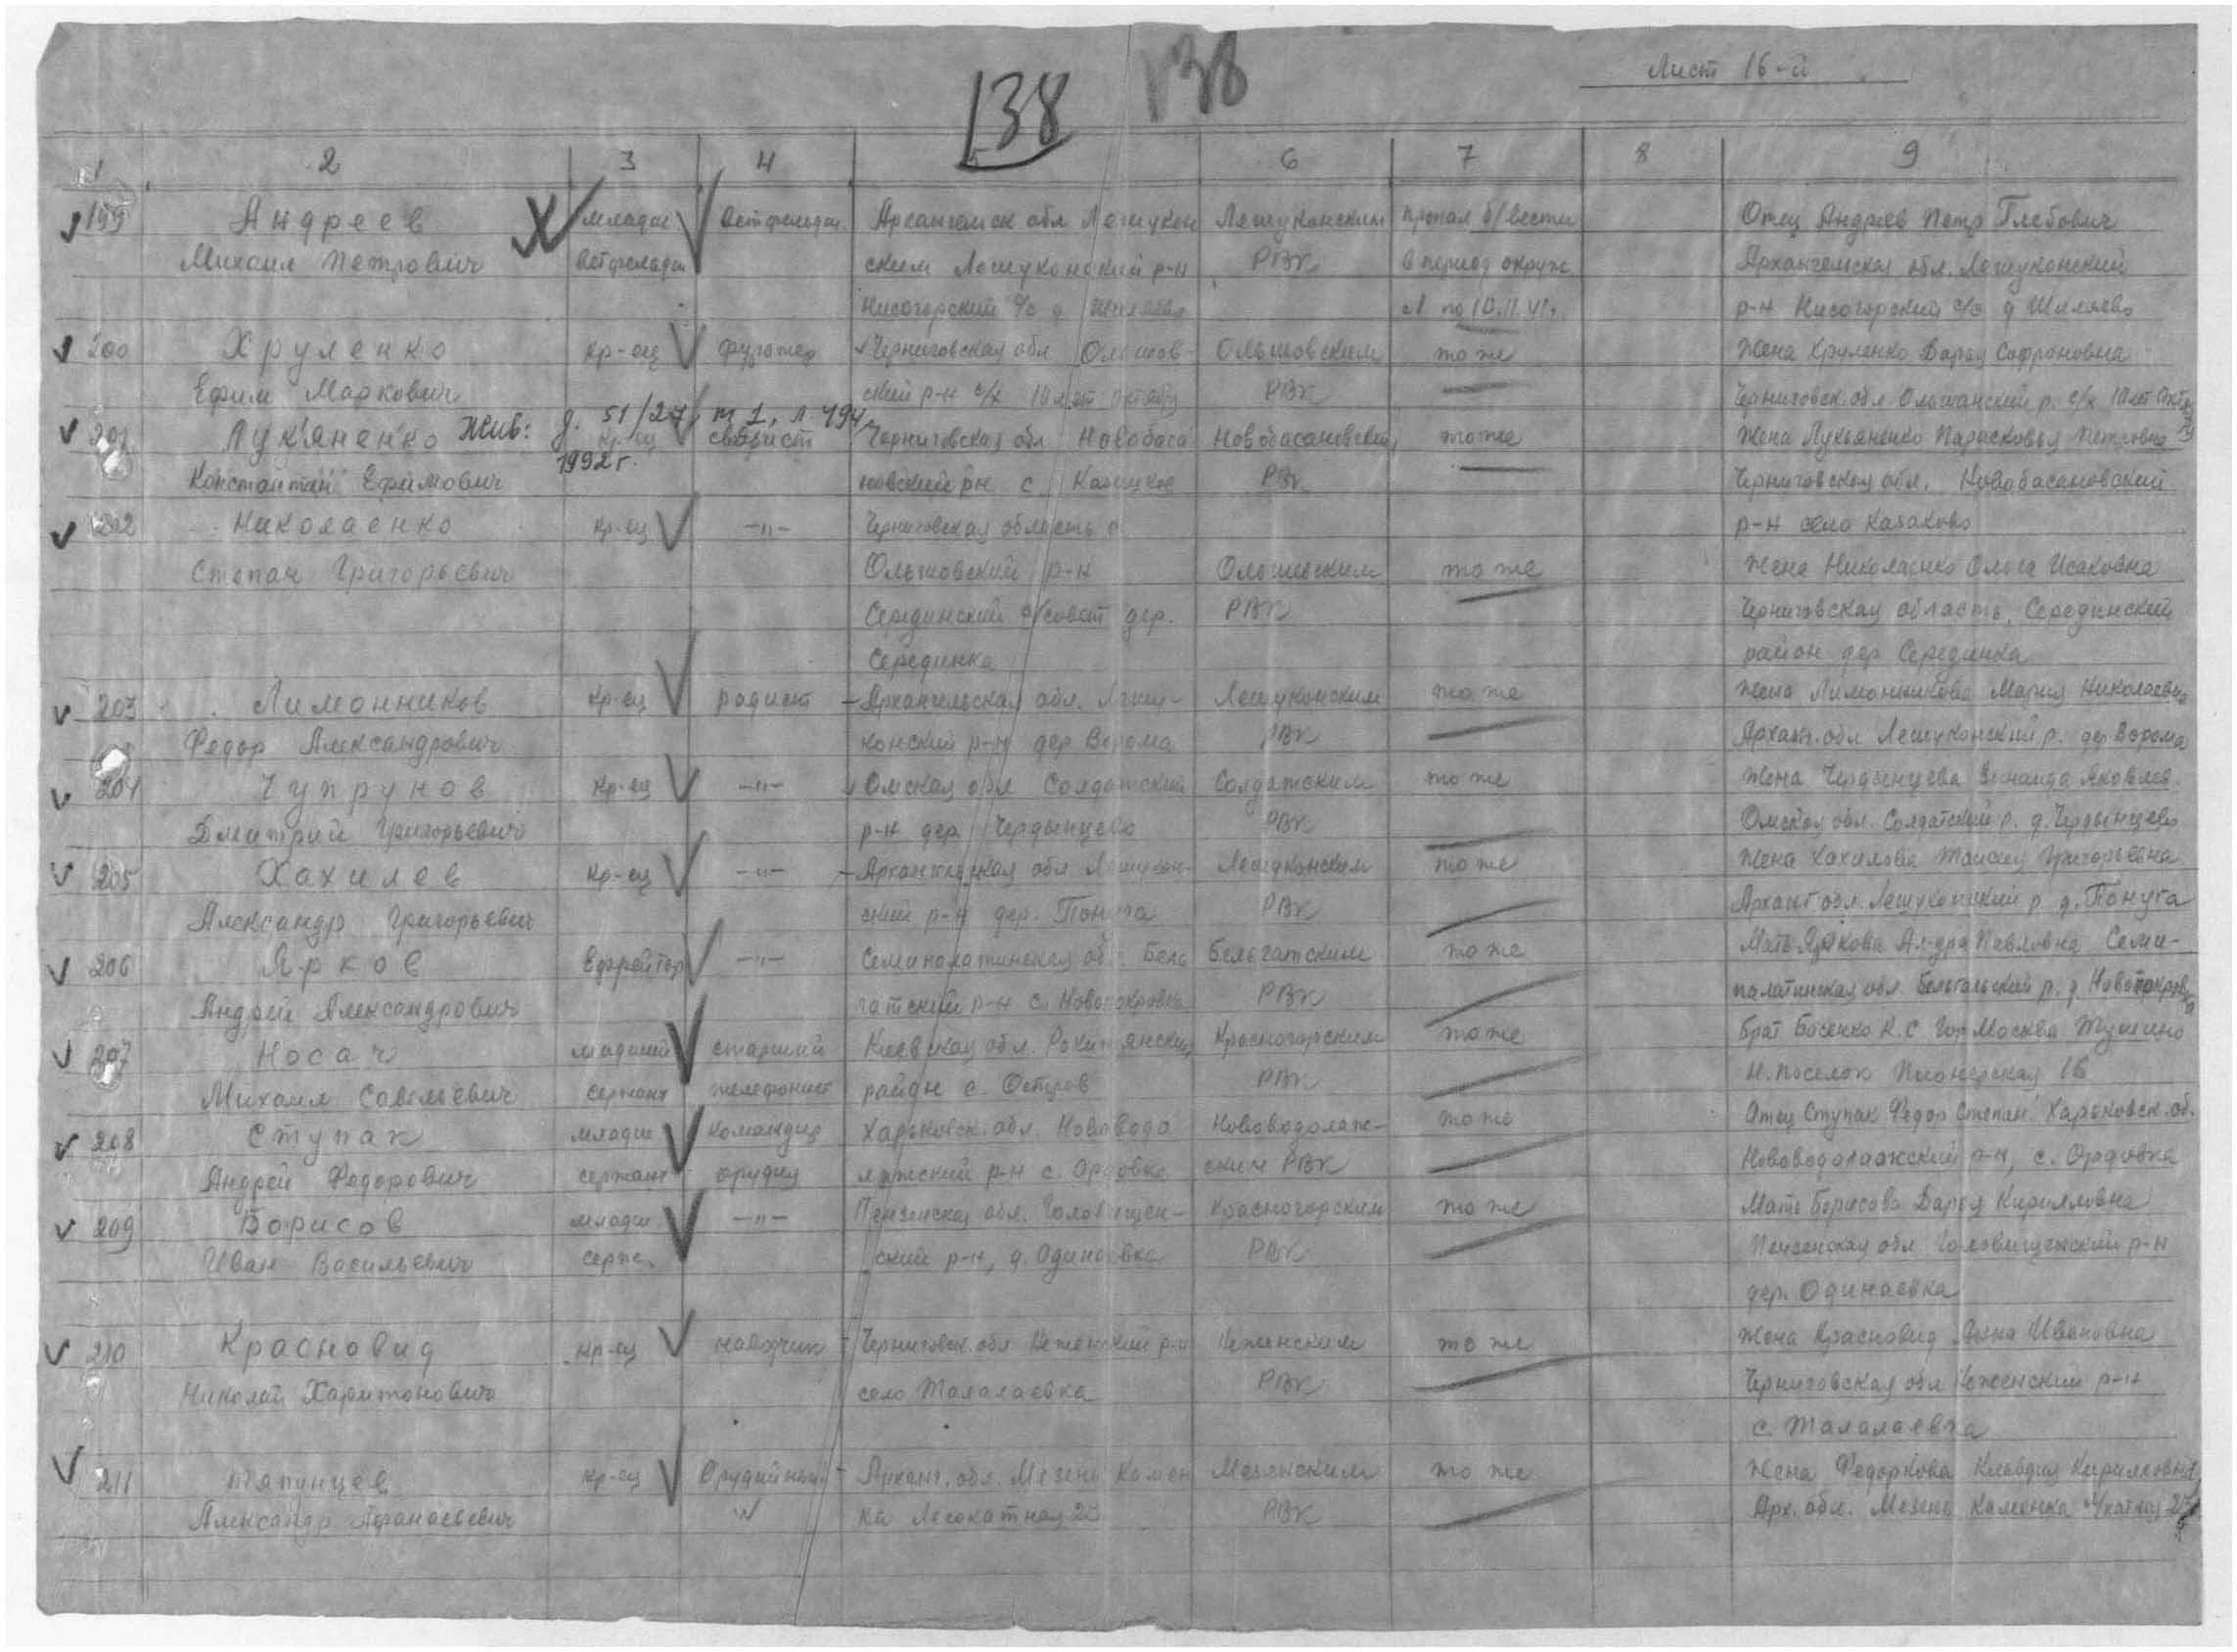 Лист 16-й
138 138
1 2 3 4 6 7 8 9
199 Андреев младш ветфельдш. Архангельск обл Лешукон Лешуконским пропал б/вести Отец Андреев Петр Глебович
Михаил Петрович ветфельдш ским Лешуконский р-н РВК в период окруж. Архангельская обл. Лешуконский
Нисогорский с/с д Шиляево с1 по 10.11.41. р-н Нисогорский с/с д Шиляево
200 Хруленко кр-ец фуражер Черниговская обл Ольшов- Ольшовским то же Жена Хруленко Дарья Софроновна
Ефим Маркович ский р-н с/х 10 лет октября РВК Черниговск. обл Ольшанский р. с/х 10 лет Октяб
201 Лукяненко Жив: д. 51/27, т 1, л. 494, кр-ец связист Черниговская обл Новобаса Новобасановским то же Жена Лукьяненко Парасковья Петровна
1992 г.
Константин Ефимович новский рн с Казацкое РВК Черниговская обл. Новобасановский
202 Николаенко кр-ец -"- Черниговская область р-н село Казаково
Степан Григорьевич Ольшовский р-н Ольшевским то же Жена Николаенко Ольга Исаковна
Серединский с/совет дер. РВК Черниговская область, Серединский
Серединка район дер Серединка
203 Лимонников кр-ец радист Архангельская обл. Лешу- Лешуконским то же Жена Лимонникова Мария Николаевна
Федор Александрович конский р-н дер Ворома РВК Арханг. обл Лешуконский р. дер Ворома
204 Чупрунов кр-ец -"- Омская обл Солдатский Солдатским то же Жена Чердынцева Зинаида Яковлев.
Дмитрий Григорьевич р-н дер Чердынцево РВК Омская обл. Солдатский р. д. Чердынцево
205 Хахилев кр-ец -"- Архангельская обл Лешукон- Лешуконским то же Жена Хахилова Таисия Григорьевна
Александр Григорьевич ский р-н дер. Понуга РВК Арханг обл. Лешуконский р д. Понуга
206 Ярков Ефрейтор -"- Семипалатинская об. Бель Бельгатским то же Мать Яркова Ал-дра Павловна Семи-
Андрей Александрович гатский р-н с. Новопокровка РВК палатинская обл. Бельгатский р. д. Новопокровка
207 Носач младший старший Киевская обл. Рокитянский Красногорским то же Брат Босенко К. С Гор Москва Тушино
Михаил Савельевич сержант телефонист район с. Остров РВК Н. поселок Пионерская 16
208 Ступак младш командир Харьковск. обл. Нововодо Нововодолаж- то же Отец Ступак Федор Степан. Харьковск. об.
Андрей Федорович сержант орудия лажский р-н с. Ордовка ским РВК Нововодолажский р-н, с. Ордовка
209 Борисов младш. -"- Пензенская обл. Головищен- Красногорским то же Мать Борисова Дарья Кирилловна
Иван Васильевич серж. ский р-н, д. Одинаевка РВК Пензенская обл Головищенский р-н
дер. Одинаевка
210 Красновид кр-ец наводчик Черниговск. обл Неженский р-н Неженским то же Жена Красновид Анна Ивановна
Николай Харитонович село Талалаевка РВК Черниговская обл Неженский р-н
с. Талалаевка
211 Тяпунцев кр-ец Орудийный Арханг. обл. Мезень Камен Мезенским то же Жена Федоркова Клавдия Кириловна
Александр Афанасьевич № ка Лесокатная 23 РВК Арх. обл. Мезень Каменка л/катная 23